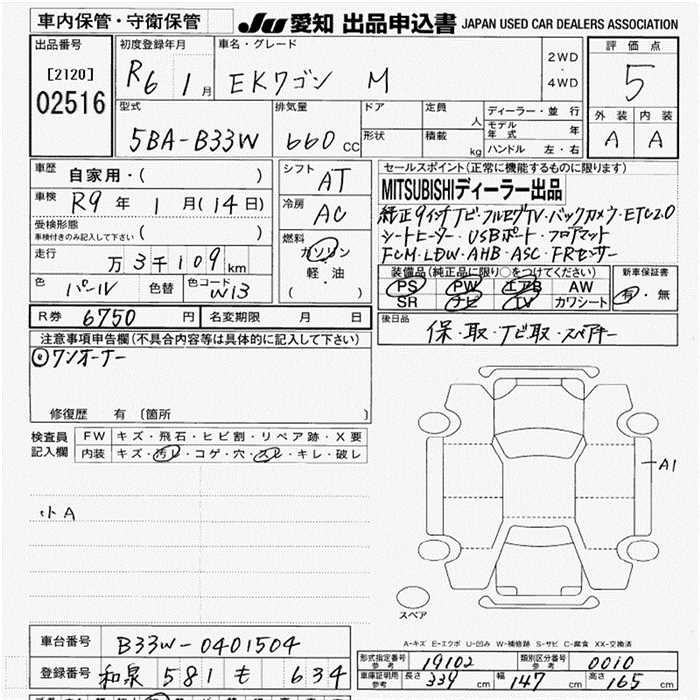 車内保管・守衛保管
JU 愛知 出品申込書 JAPAN USED CAR DEALERS ASSOCIATION
出品番号
[2120]
02516
初度登録年月
R6 1月
車名・グレード
EKワゴン M
2WD
・
4WD
評価点
5
外装 内装
A A
型式
5BA-B33W
排気量
660 CC
ドア
形状
定員 人
積載 kg
ディーラー・並行
モデル年式 年
ハンドル 左・右
車歴
自家用・( )
車検
R9年 1月(14日)
受検形態
車検付きのみ記入して下さい ( )
走行
万3千109km
色 パール 色替 色コード W13
シフト
AT
冷房
AC
燃料
ガソリン
軽・油
( )
セールスポイント(正常に機能するものに限ります)
MITSUBISHIディーラー出品
純正9インチナビ・フルセグTV・バックカメラ・ETC2.0
シートヒーター・USBポート・フロアマット
FCM・LDW・AHB・ASC・FRセンサー
装備品(純正品に限り○をつけてください)
PS PW エアB AW
SR ナビ TV カワシート
新車保証書
有・無
R券 6750円 名変期限 月 日
後日品
保・取・ナビ取・スペアキー
注意事項申告欄(不具合内容等は具体的に記入して下さい)
◎ワンオーナー
修復歴 有〔箇所 〕
検査員記入欄
FW キズ・飛石・ヒビ割・リペア跡・X要
内装 キズ・汚レ・コゲ・穴・スレ・キレ・破レ
小A
A1
スペア
A-キズ E-エクボ U-凹み W-補修跡 S-サビ C-腐食 XX-交換済
車台番号 B33W-0401504
登録番号 和泉 581 も 634
形式指定番号 参考 19102 類別区分番号 参考 0010
車庫証明用 参考 長さ 339 cm 幅 147 cm 高さ 165 cm